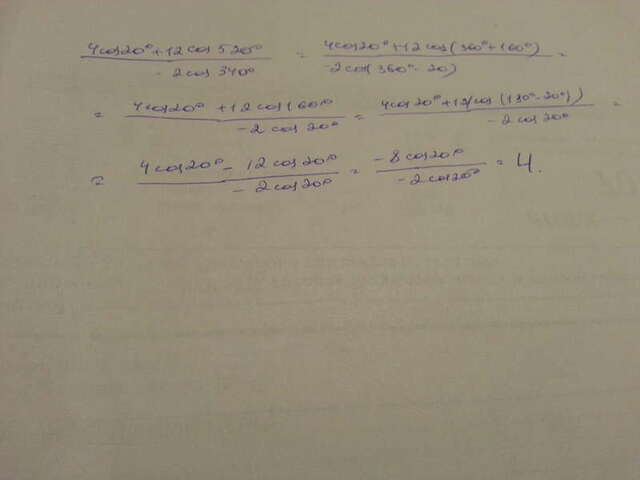 (4cos20°+12cos520°)/(-2cos340°) = (4cos20°+12cos(360°+160°))/(-2cos(360°-20)) =
= (4cos20°+12cos160°)/(-2cos20°) = (4cos20°+12cos(180°-20°))/(-2cos20°) =
= (4cos20°-12cos20°)/(-2cos20°) = (-8cos20°)/(-2cos20°) = 4.